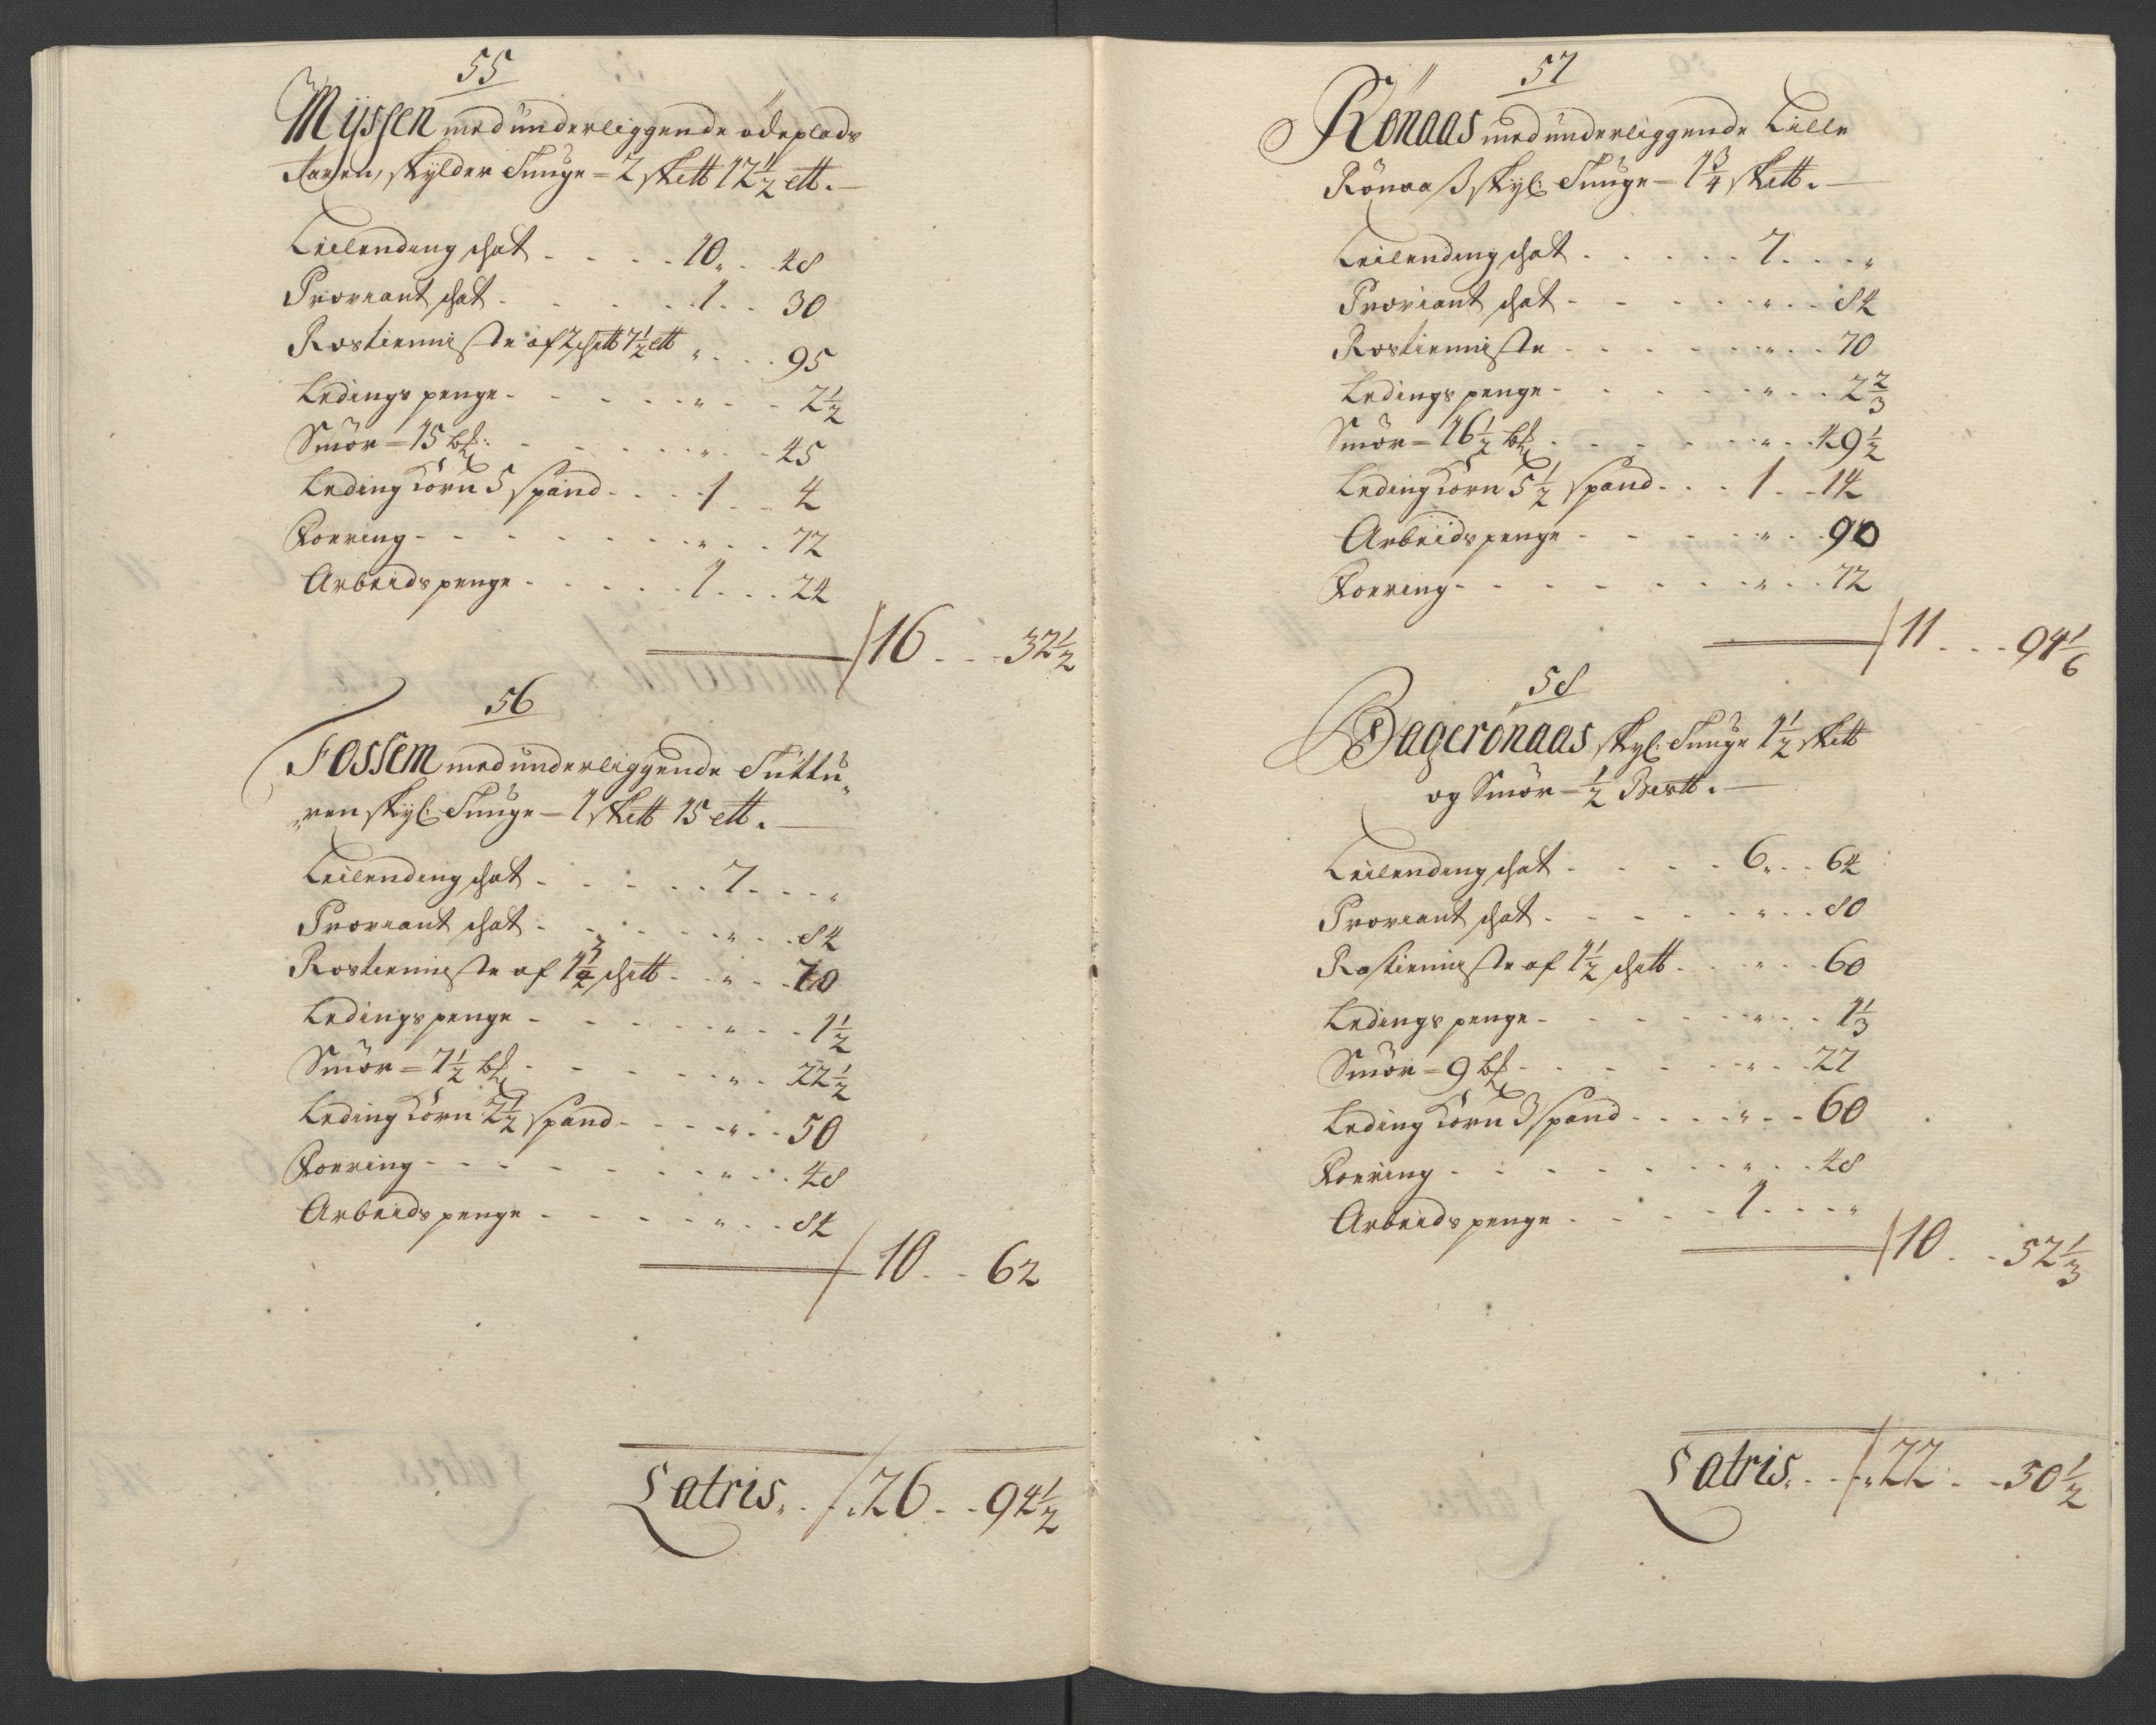 55
Myssen med underliggende ödeplads
skylder Tunge = 2 skett 12½ ett.
Leilending schat . . . . 10 „ . 48
Proviant schat . . . . 1 . . 30
Rostienniste af 2 schett 7½ ett „ . . . 95
Ledings penge - - - - „ - - 2½
Smör = 15 bf: - - - - „ - 45
Leding Korn 5 spand . . . 1 . . 4
Foering - - - - - - „ . . 72
Arbeids penge . . . . . 1 . . . 24
16 . . . 32½
56
Fossem med underliggende Tuttu„
„ren skyl: Tunge = 1 skett 15 ett.
Leilending schat . . . . . 7 . . . „
Proviant schat . . . . . „ . . 84
Rostienniste af 1¾ schett . . „ . . 70
Ledings penge - - - - „ - - 1½
Smör = 7½ bf - - - - „ . 22½
Leding Korn 2½ spand - - - „ . . 50
Foering - - - - - - „ . . 48
Arbeids penge - - - - „ . . 84
10 . . 62
Latris „ . 26 . . 94½
57
Rönaas med underliggende Lille
Rönaaß skyl: Tunge = 1¾ skett.
Leilending schat . . . . . 7 . . . „
Proviant schat - - - - „ . . 84
Rostienniste - - - - - „ . . 70
Ledings penge - - - - „ . . 2⅔
Smör = 16½ bf . - - - „ . . 49½
Leding Korn 5½ spand . . . 1 . . 14
Arbeids penge - - - - „ . . 90
Foering - - - - - - „ . . 72
11 . . . 94⅙
58
Bagerönaas skyl: Tunge 1½ skett
og Smör = ½
Leilending schat . . . . 6 „ . . 64
Proviant schat . . . . . „ . . 80
Rostienniste af 1½ schett . . . „ . . 60
Ledings penge - - - - „ . . 1⅓
Smör = 9 bf - - - - „ . . 27
Leding Korn 3 spand . . . . „ - - 60
Foering . - - - - - „ . . 48
Arbeids penge . . . . 1 . . . „
10 . . 52⅓
Latris „ . . „ 22 . . 50½